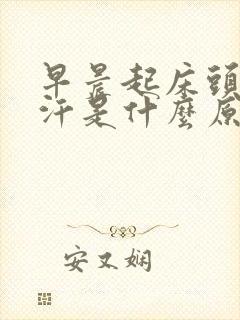 早晨起床頭
汗是什麼原
安又娴